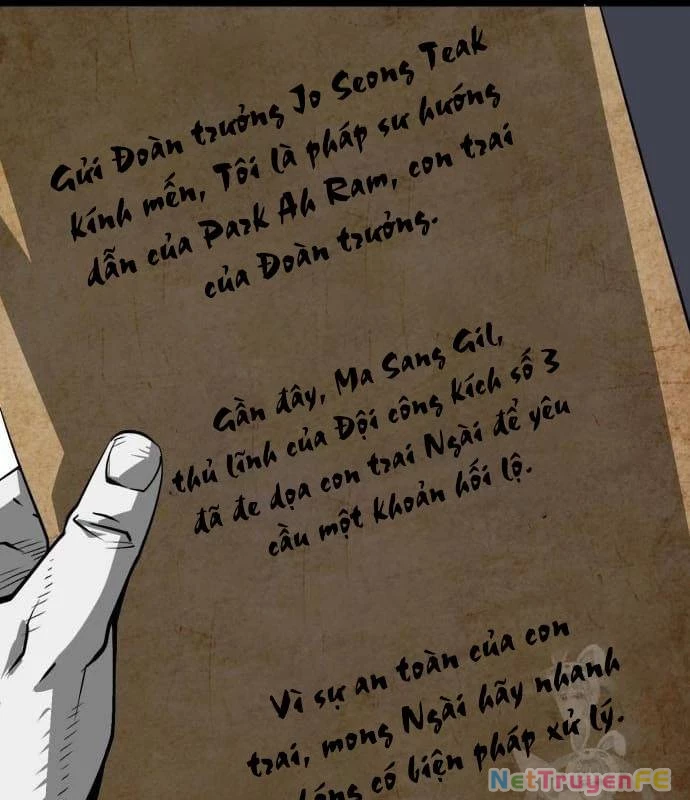 Gửi Đoàn trưởng Jo Seong Teak
kính mến, Tôi là pháp sư hướng
dẫn của Park Ah Ram, con trai
của Đoàn trưởng.
Gần đây, Ma Sang Gil,
thủ lĩnh của Đội công kích số 3
đã đe dọa con trai Ngài để yêu
cầu một khoản hối lộ.
Vì sự an toàn của con
trai, mong Ngài hãy nhanh
có biện pháp xử lý.
NetTruyenFE